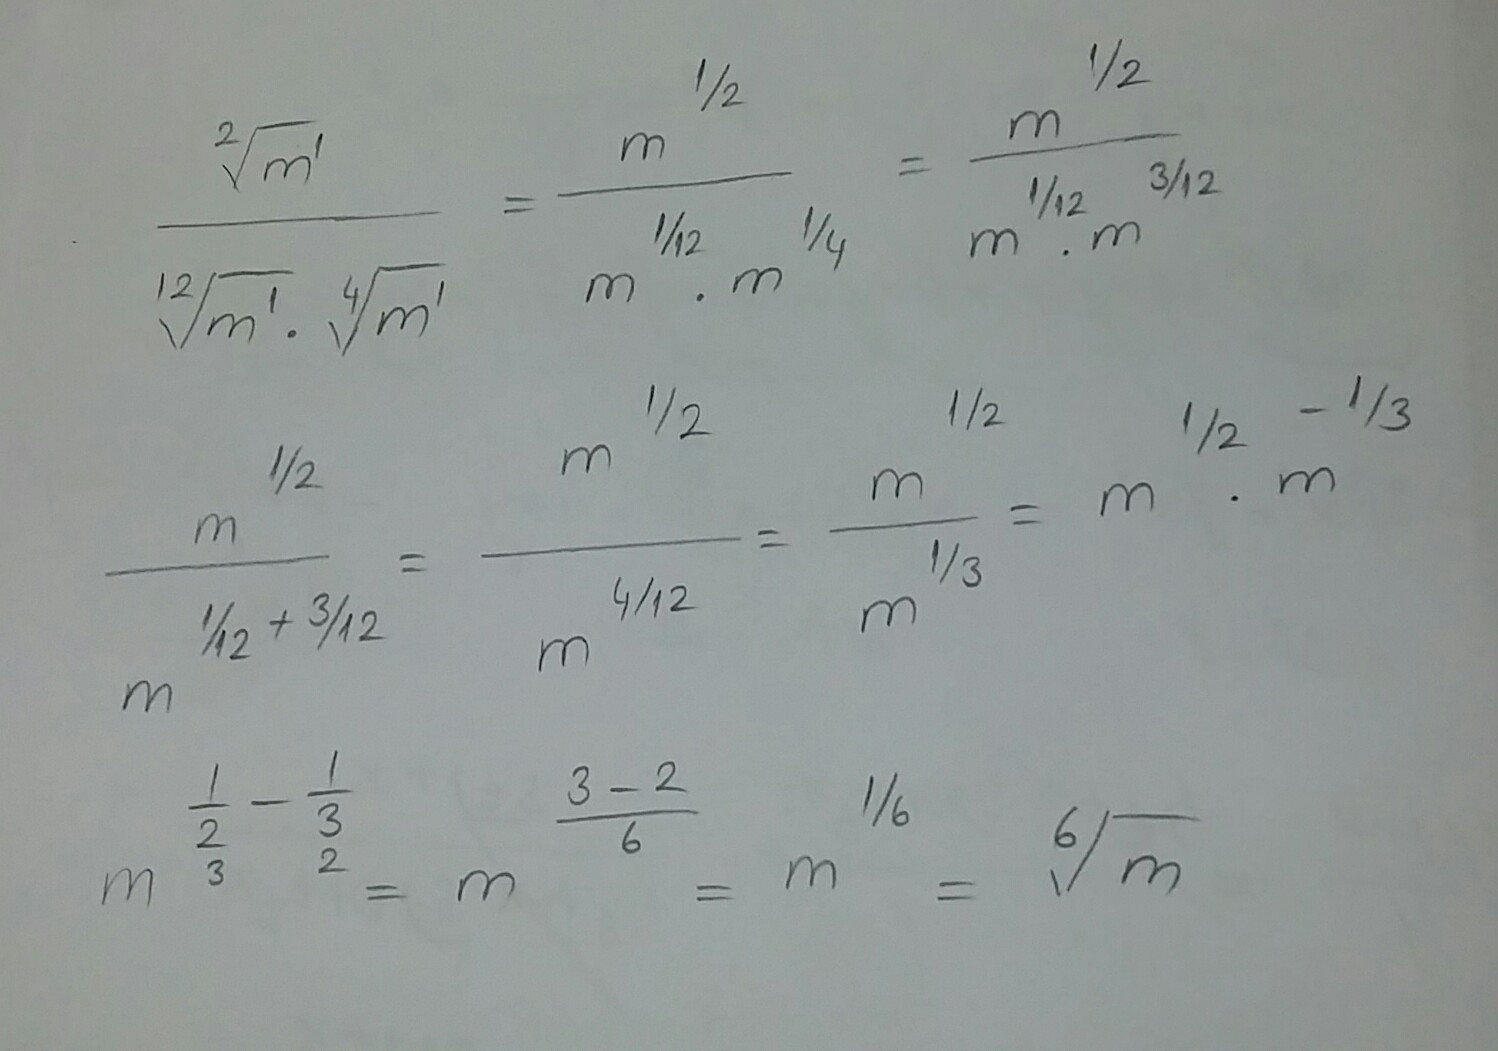 ²√m¹ / (¹²√m¹ . ⁴√m¹) = m^(1/2) / (m^(1/12) . m^(1/4)) = m^(1/2) / (m^(1/12) . m^(3/12))
m^(1/2) / m^(1/12 + 3/12) = m^(1/2) / m^(4/12) = m^(1/2) / m^(1/3) = m^(1/2) . m^(-1/3)
m^(1/2 - 1/3) 3 2 = m^((3-2)/6) = m^(1/6) = ⁶√m